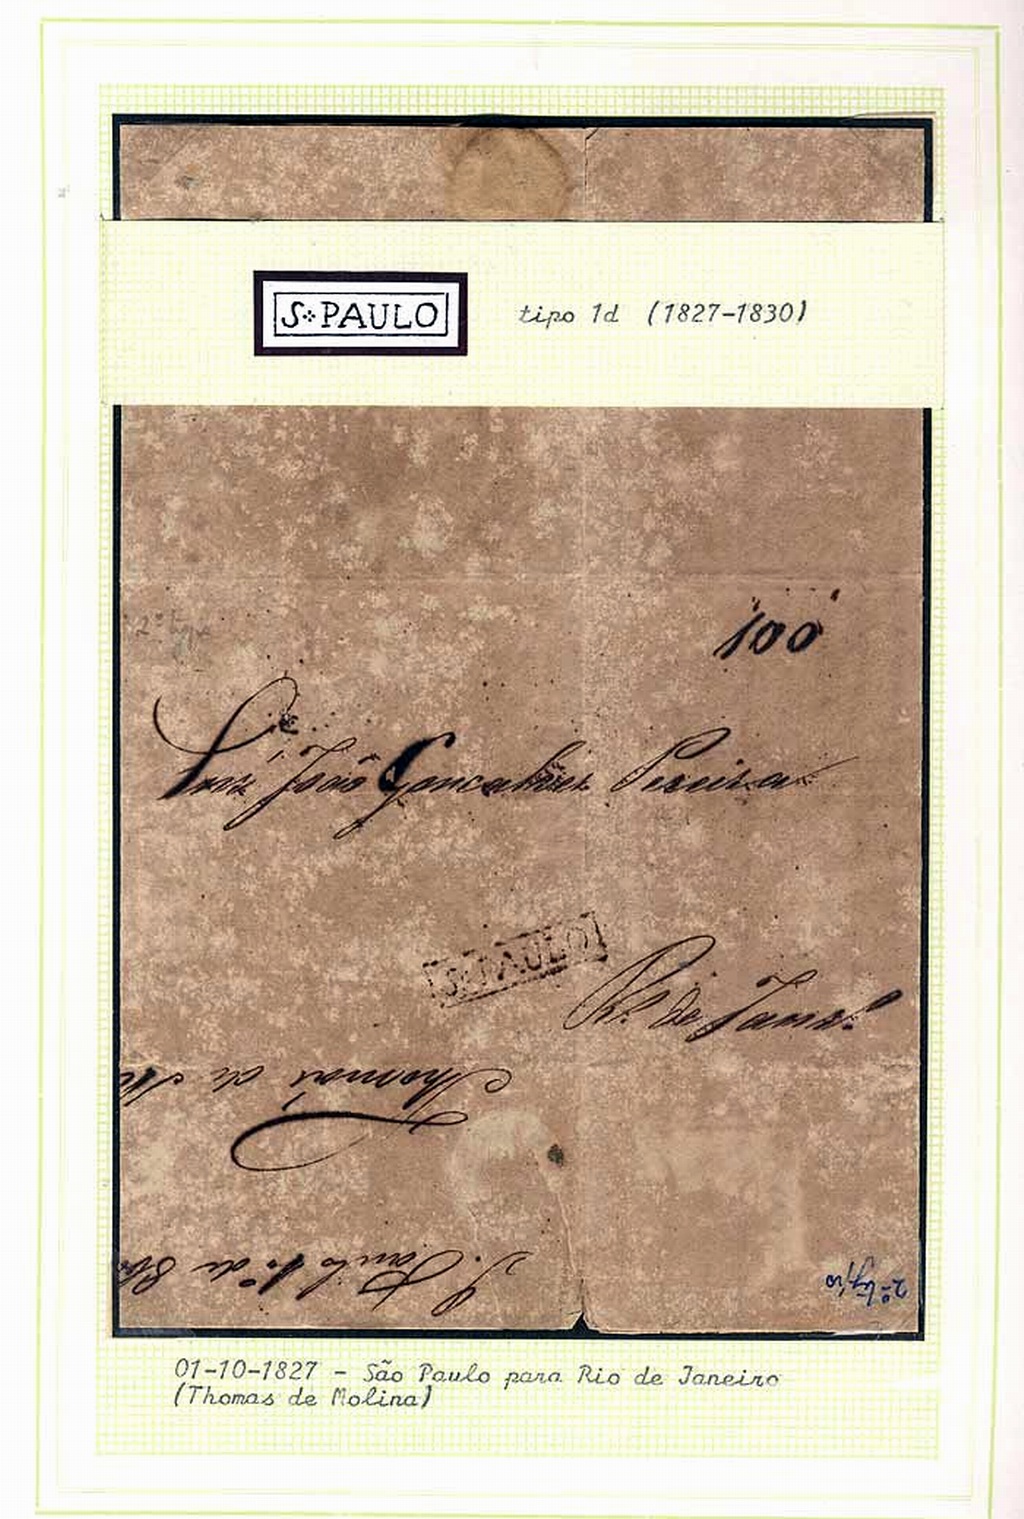 S PAULO
tipo 1d (1827-1830)
2º typo
100
João Goncalves Pereira
S. PAULO
Rº de Janrº
Thomas de
S. Paulo 1º de 8bro
2º typo
01-10-1827 - São Paulo para Rio de Janeiro
(Thomas de Molina)